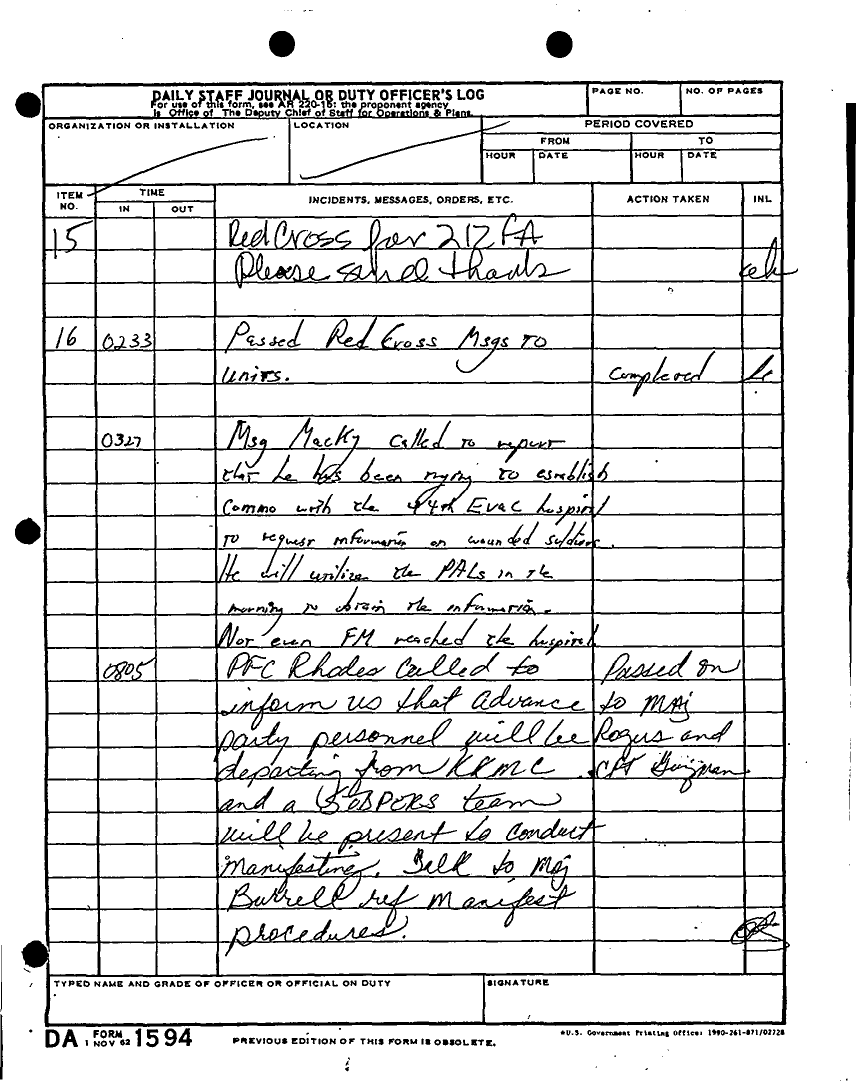 DAILY STAFF JOURNAL OR DUTY OFFICER'S LOG
For use of this form, see AR 220-15; the proponent agency
is Office of The Deputy Chief of Staff for Operations & Plans.
PAGE NO.
NO. OF PAGES
ORGANIZATION OR INSTALLATION
LOCATION
PERIOD COVERED
FROM
TO
HOUR DATE HOUR DATE
ITEM NO.
TIME
IN OUT
INCIDENTS, MESSAGES, ORDERS, ETC.
ACTION TAKEN
INL
15 Red Cross for 212 FA
Please send thanks
16 0233 Passed Red Cross Msgs to
units. Completed
0327 Msg Macky called to report
that he has been trying to establish
Commo with the 44th Evac hospital
to request information on wounded soldiers.
He will utilize the PALs in the
morning to obtain the information.
Not even FM reached the hospital
0805 PFC Rhodes called to Passed on
inform us that advance to MAJ
party personnel will be Rogers and
departing from KKMC CPT
and a team
will be present to conduct
Manifesting. to Maj
Burrell ref manifest
procedures.
TYPED NAME AND GRADE OF OFFICER OR OFFICIAL ON DUTY
SIGNATURE
DA FORM 1 NOV 62 1594
PREVIOUS EDITION OF THIS FORM IS OBSOLETE.
*U.S. Government Printing Office: 1990-261-871/02728